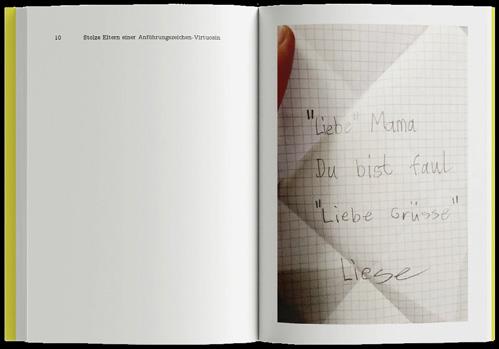 10 Stolze Eltern einer Anführungszeichen-Virtuosin
"Liebe" Mama
Du bist faul
"Liebe Grüsse"
Liese